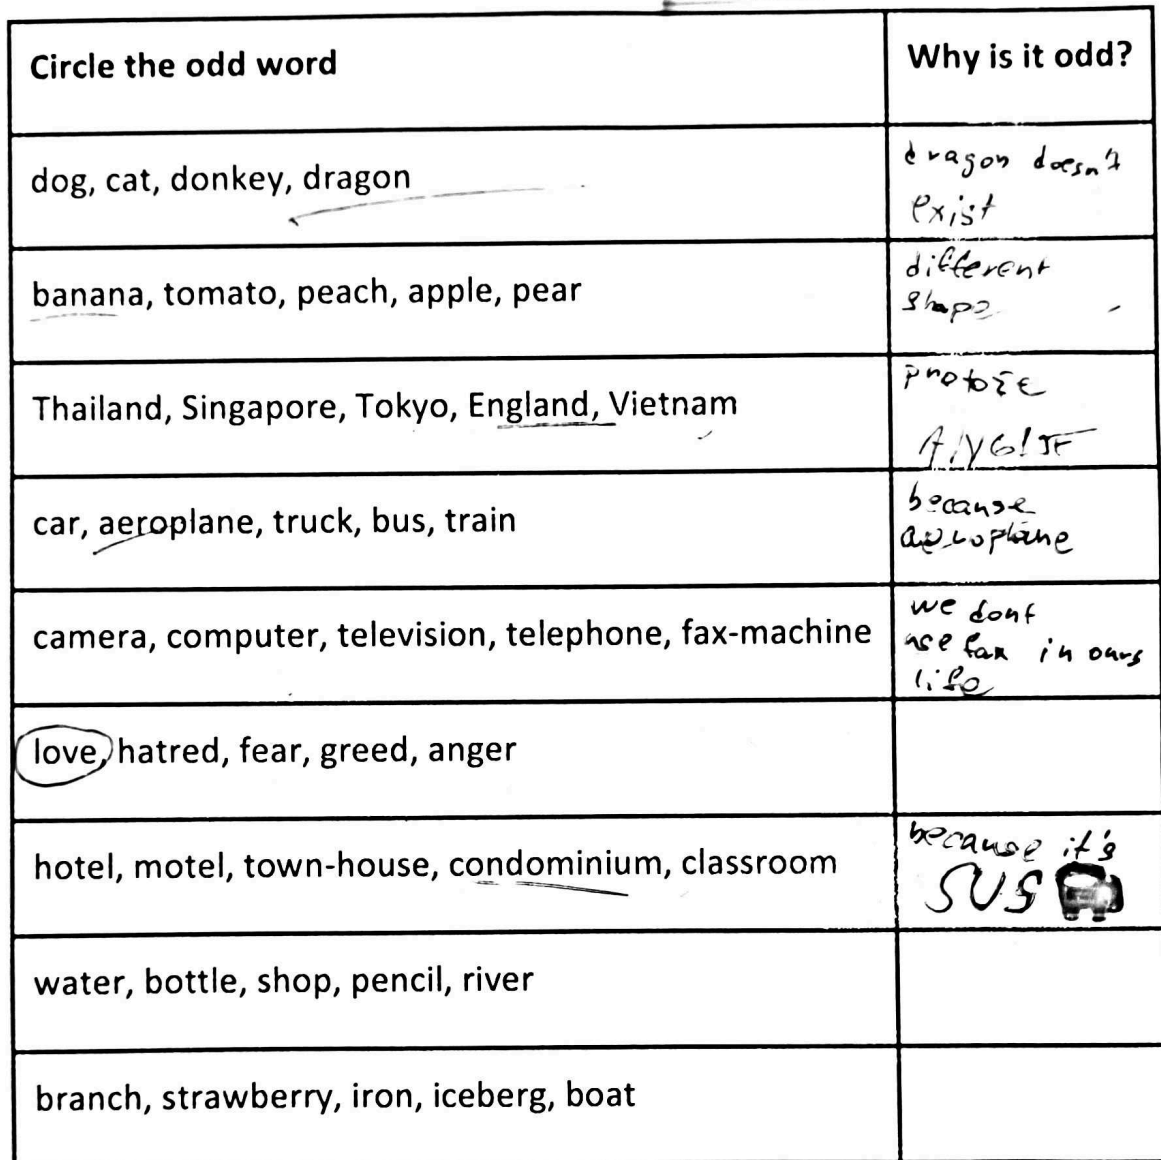 Circle the odd word
Why is it odd?
dog, cat, donkey, dragon
dragon doesn't
exist
banana, tomato, peach, apple, pear
different
shape
Thailand, Singapore, Tokyo, England, Vietnam
car, aeroplane, truck, bus, train
because
aeroplane
camera, computer, television, telephone, fax-machine
we dont
use fax in ours
life
love, hatred, fear, greed, anger
hotel, motel, town-house, condominium, classroom
because it's
SUS
water, bottle, shop, pencil, river
branch, strawberry, iron, iceberg, boat